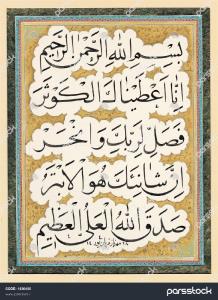 بسم الله الرحمن الرحیم
انا اعطیناک الکوثر
فصل لربک وانحر
ان شانئک هو الابتر
صدق الله العلی العظیم
parsstock